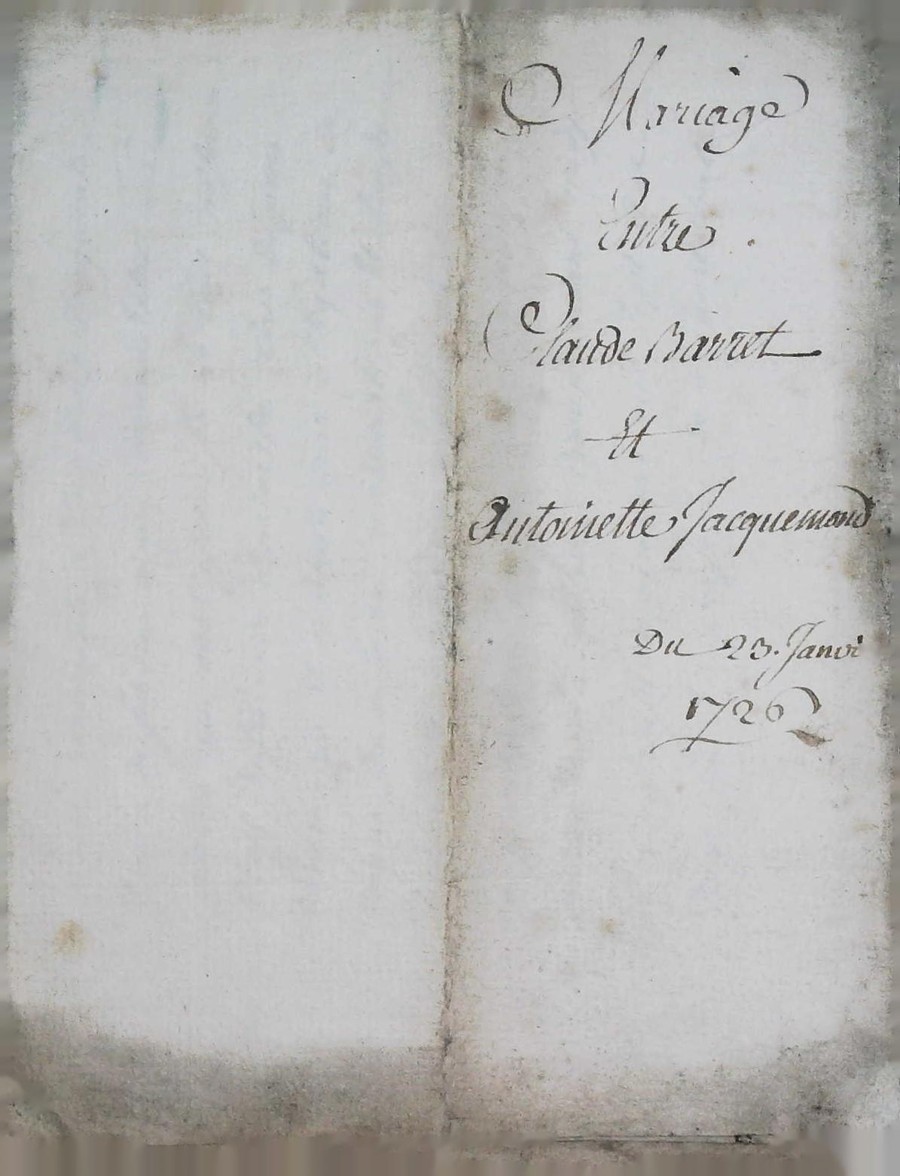 Mariage
Entre
Claude Barret
Et
Antoinette Jacquemond
Du 23. Janvi
1726